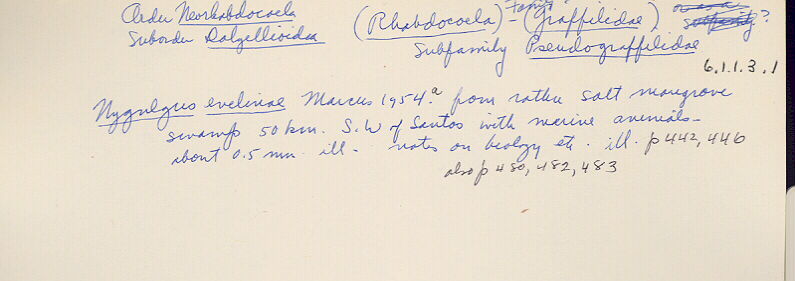 Order Neorhabdocoela (Rhabdocoela) - Family (Graffilidae) ?
Suborder Dalyellioida Subfamily Pseudograffilidae
6.1.1.3.1
Nygulgus evelinae Marcus 1954.a from rather salt mangrove
swamp 50 km. S.W of Santos with marine animals -
about 0.5 mm. ill. - notes on biology etc. ill. p 442, 446
also p 480, 482, 483